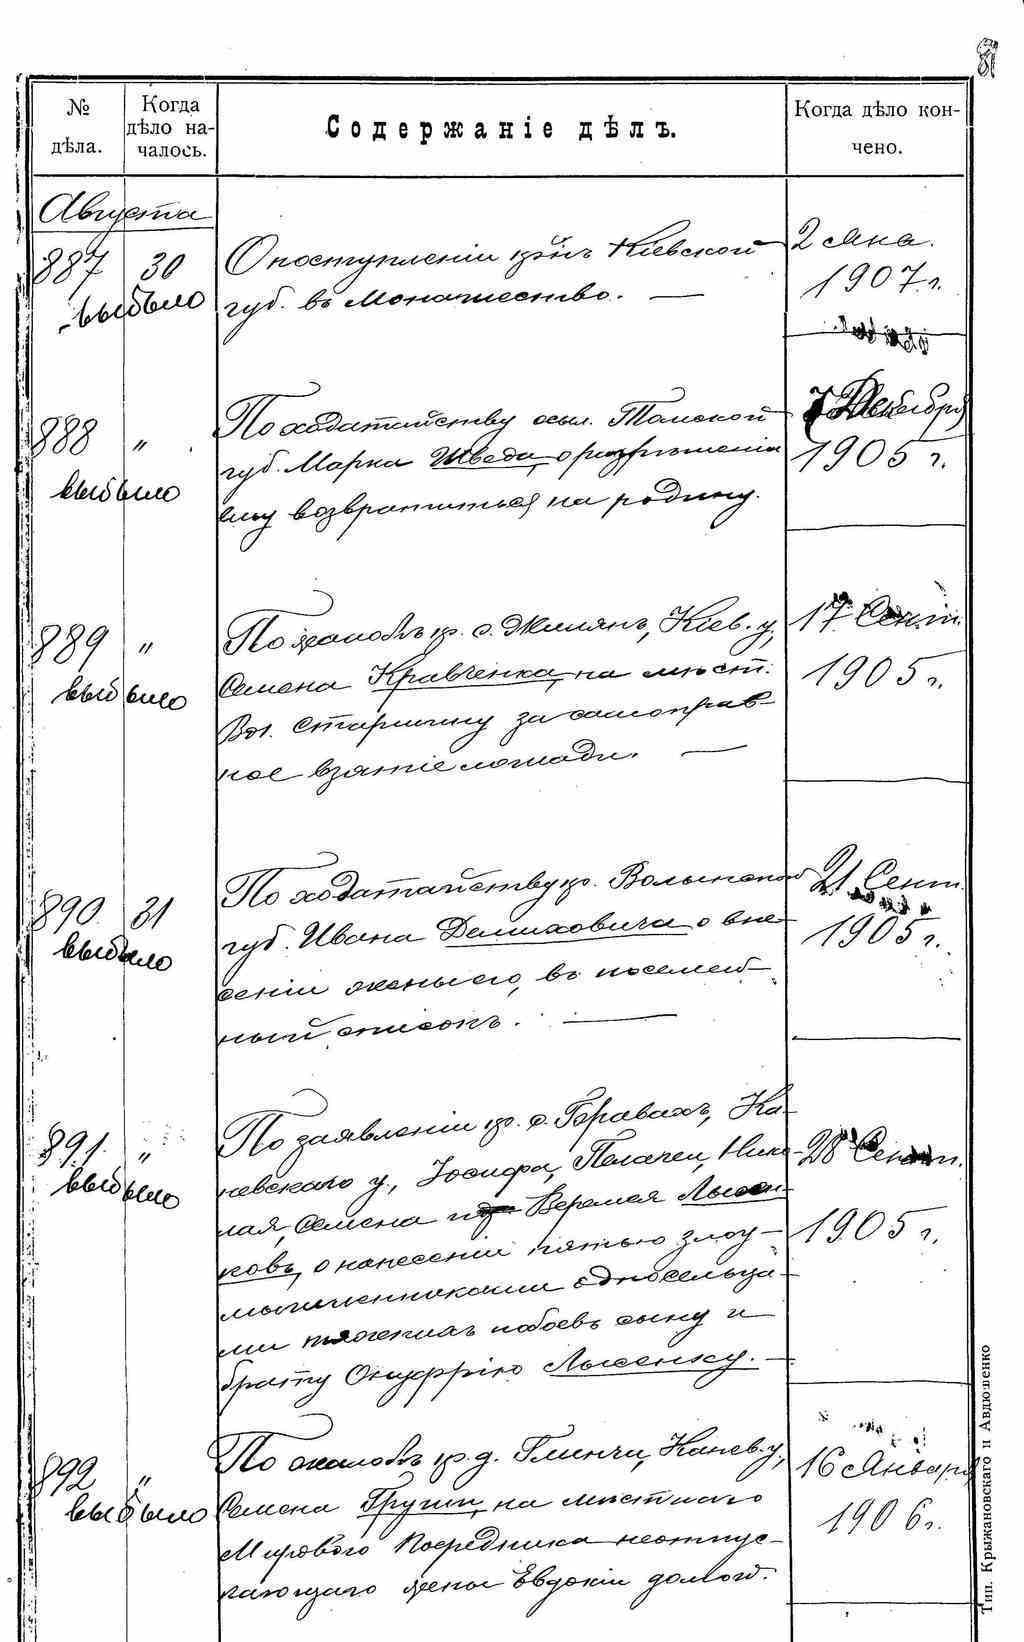 81
№ дѣла.
Когда дѣло на-
чалось.
Содержаніе дѣлъ.
Когда дѣло кон-
чено.
Августа
887 30
выбыло
О поступленіи кр-нъ Кіевской
губ. въ Монашество. —
2 Янв.
1907 г.
888 "
выбыло
По ходатайству ссыл. Томской
губ. Марка Шведа, о разрѣшеніи
ему возвратиться на родину.
7 Декабря
1905 г.
889 "
выбыло
По жалобѣ кр. с. Жилянъ, Кіев. у,
Семена Кравченка, на мѣст.
Вол. Старшину за самоправ-
ное взятіе лошади. —
17 Сент.
1905 г.
890 31
выбыло
По ходатайству кр. Волынской
губ. Ивана Демиховича о вне-
сеніи жены его, въ посемей-
ный списокъ. —
21 Сент.
1905 г.
891 "
выбыло
По заявленіи кр. с. Ка-
невскаго у., Іосифа, Пелагеи, Нико-
лая, Семена и Веремея Лысен-
ковъ, о нанесеніи пятью злоу-
мышленниками односельца-
ми побоевъ сыну и
брату Онуфрію Лысенку. —
28 Сент.
1905 г.
892 "
выбыло
По жалобѣ кр. д. Глинчи, Канев. у,
Семена на мѣстнаго
Мирового Посредника неотпус-
кающаго жены Евдокіи домой.
16 Января
1906 г.
Тип. Крыжановскаго и Авдюшенко